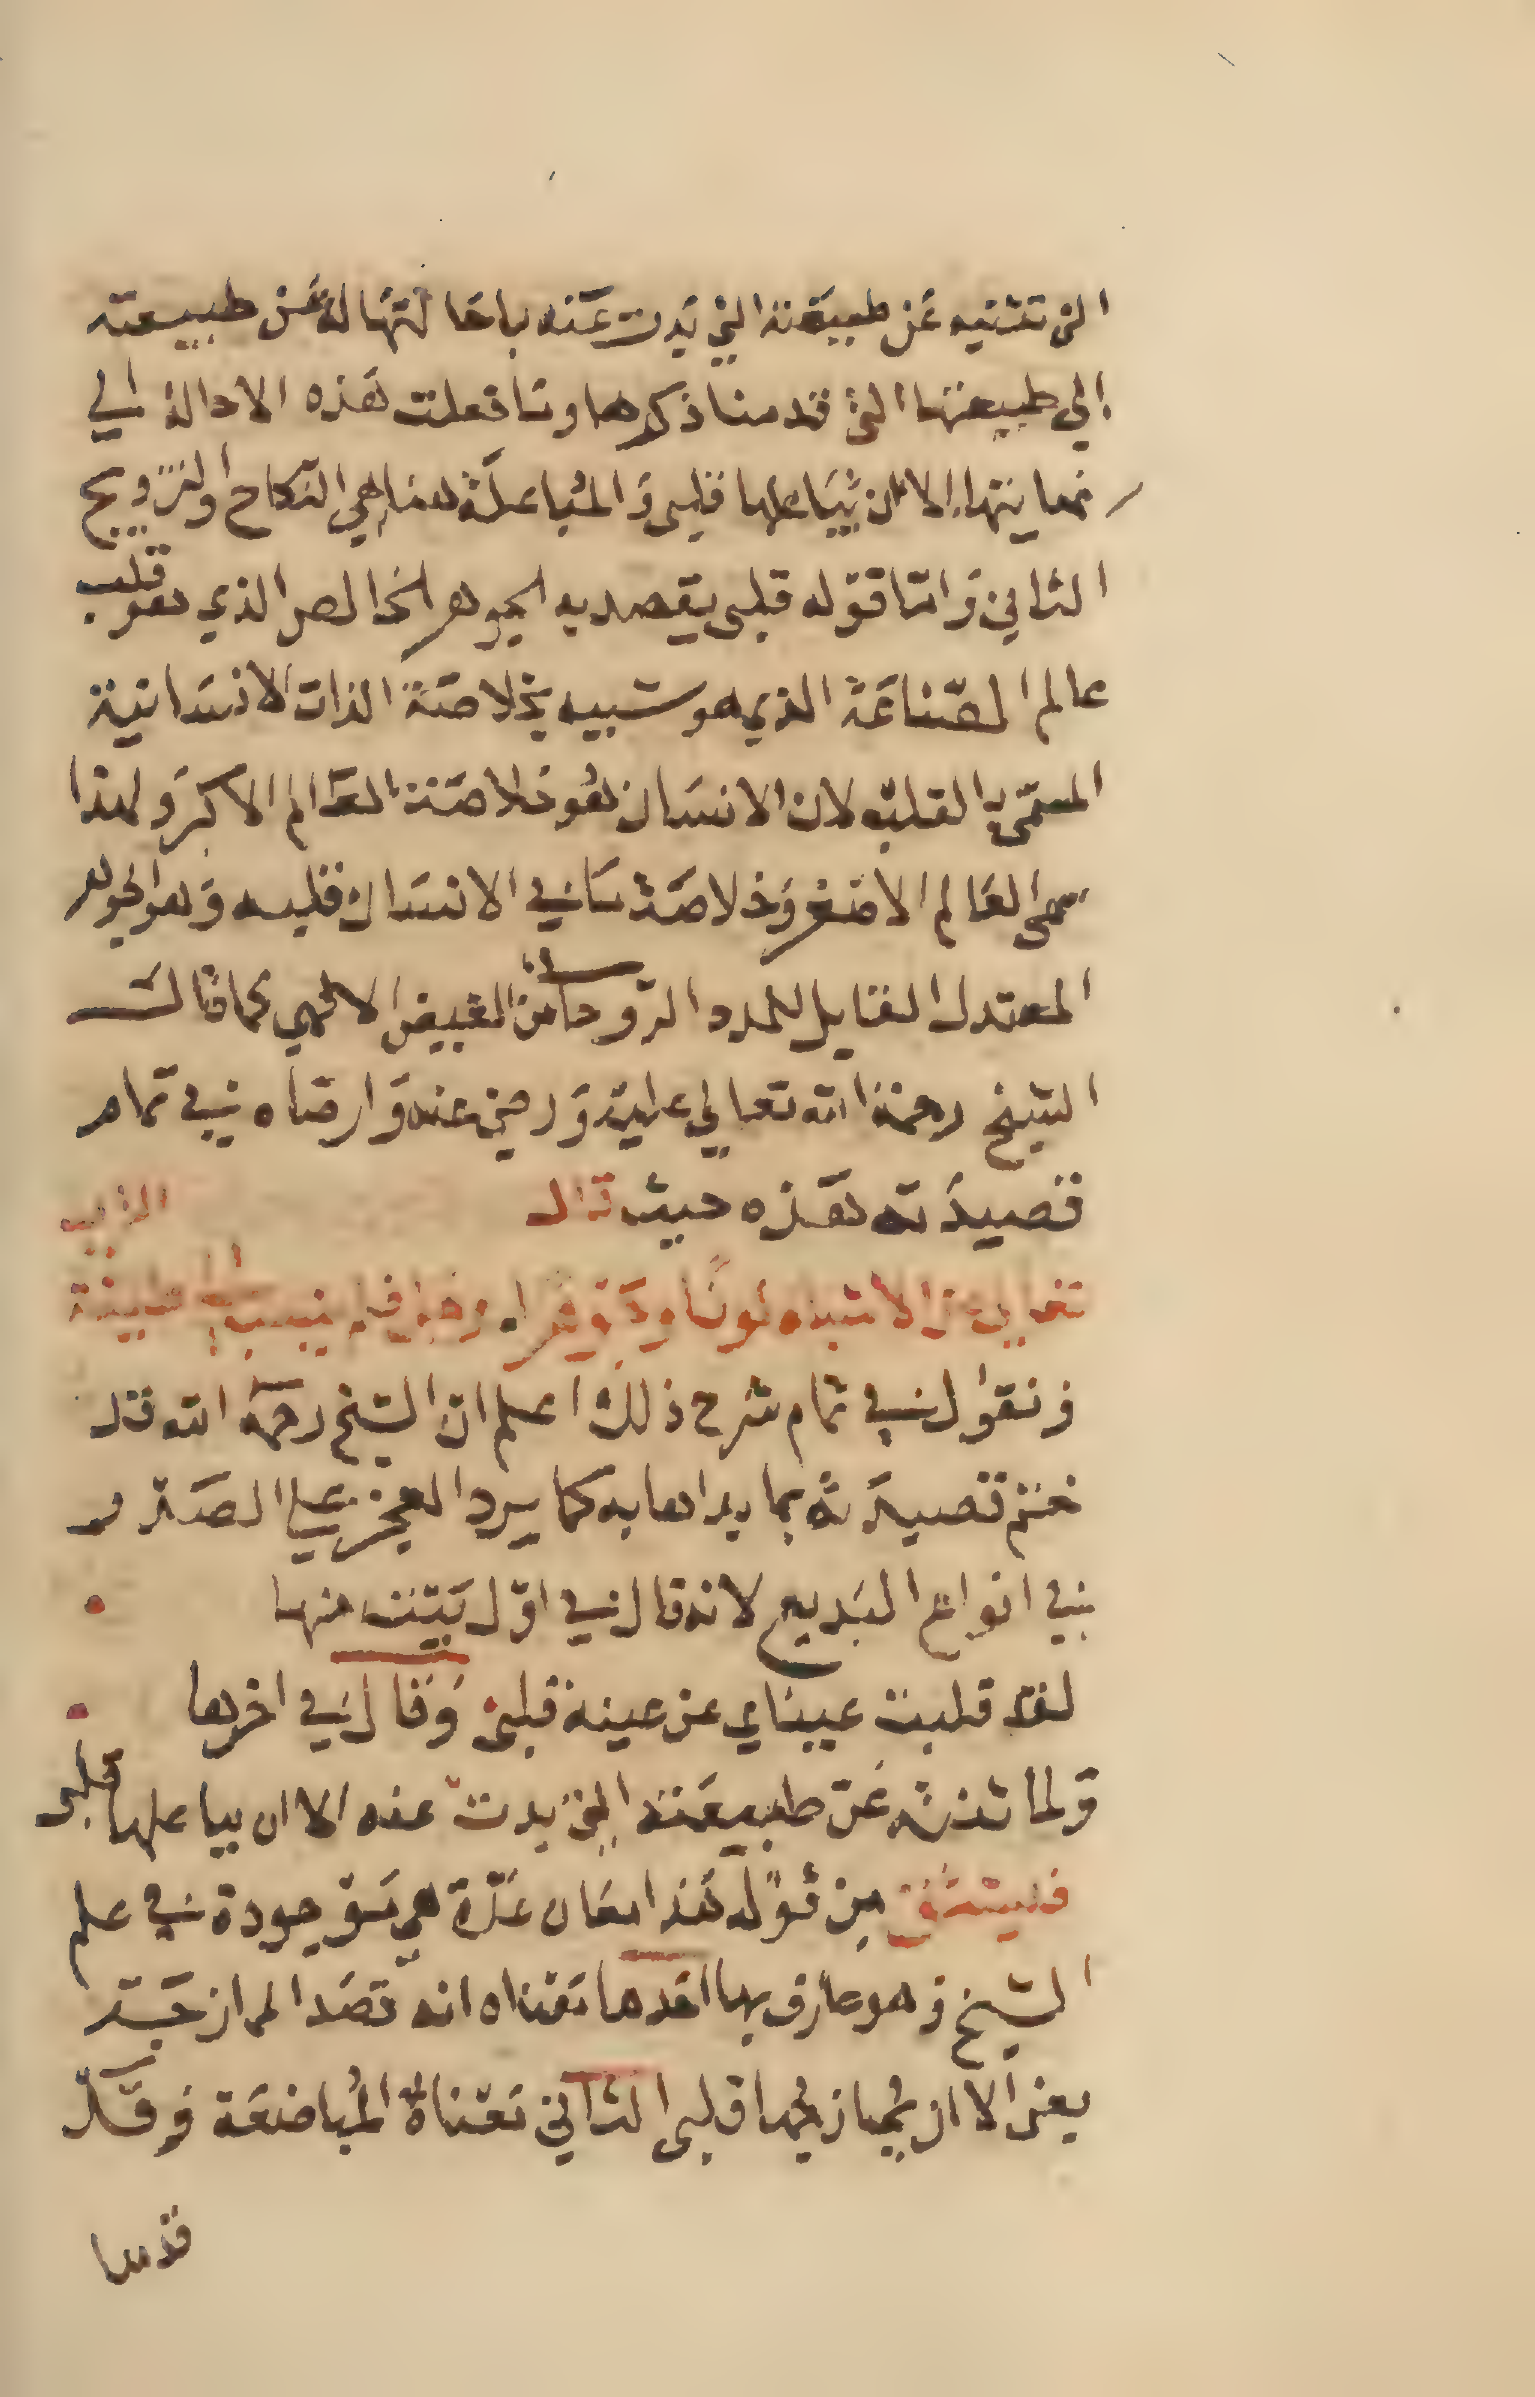 التى تثنيه عن طبيعته التي بدت عنه باحالتها له عن طبيعته
الي طبيعتها التى قدمنا ذكرها وما فعلت هذه الاحالة الي
نهايتها الا ان يباعلها قلبى والمباعلة هنا هي النكاح او التزويج
الثاني واما قوله قلبى يقصد به الجوهر الخالص الذي هو قلب
عالم الصناعة الذي هو شبيه بخلاصة الذات الانسانية
المسمى بالقلب لان الانسان هو خلاصة العالم الاكبر ولهذا
سمى العالم الاصغر وخلاصة ما في الانسان قلبه وهو الجوهر
المعتدل القابل للمدد الروحاني من الفيض الالهي كما قال
الشيخ رحمة الله تعالي عليه ورضى عنه وارضاه في تمام
قصيدته هذه حيث قال
تعالى عن الاشباه لونا وجوهرا
ونقول في تمام شرح ذلك اعلم ان الشيخ رحمه الله قد
ختم قصيدته بما بداها به كما يرد العجز علي الصدر
في انواع البديع لانه قال في اول بيت منها
لقد قلبت عيناي عن عينه قلبى وقال في اخرها
ولما تذره عن طبيعته التى بدت عنه الا ان يباعلها قلبى
من قوله هذا معان عدة هي موجودة في علم
الشيخ وهو عارف بها احدها معناه انه قصد الممازجة
يعنى الا ان يمازجها قلبى الثاني معناه المباضعة وقد